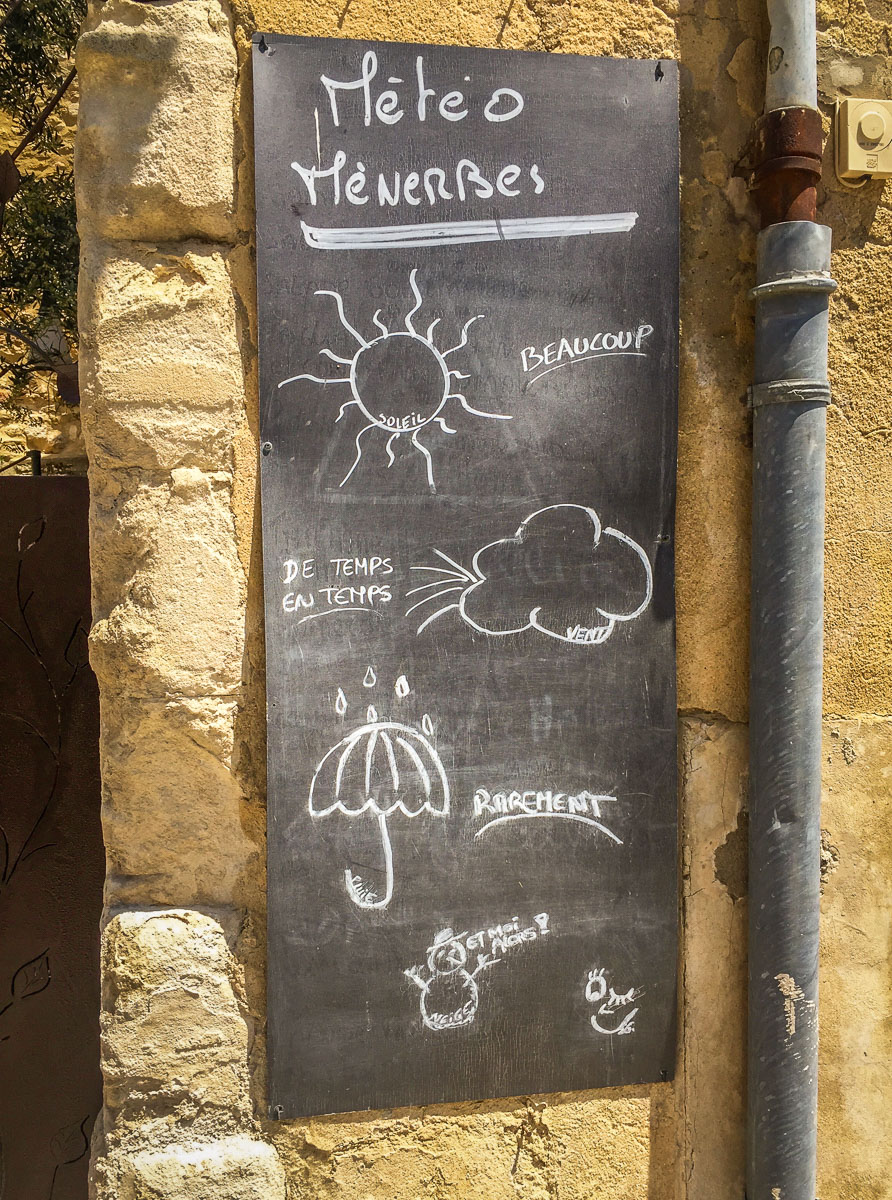 Météo
Ménerbes
BEAUCOUP
SOLEIL
DE TEMPS
EN TEMPS
VENT
RAREMENT
PLUIE
ET MOI
ALORS!
NEIGE